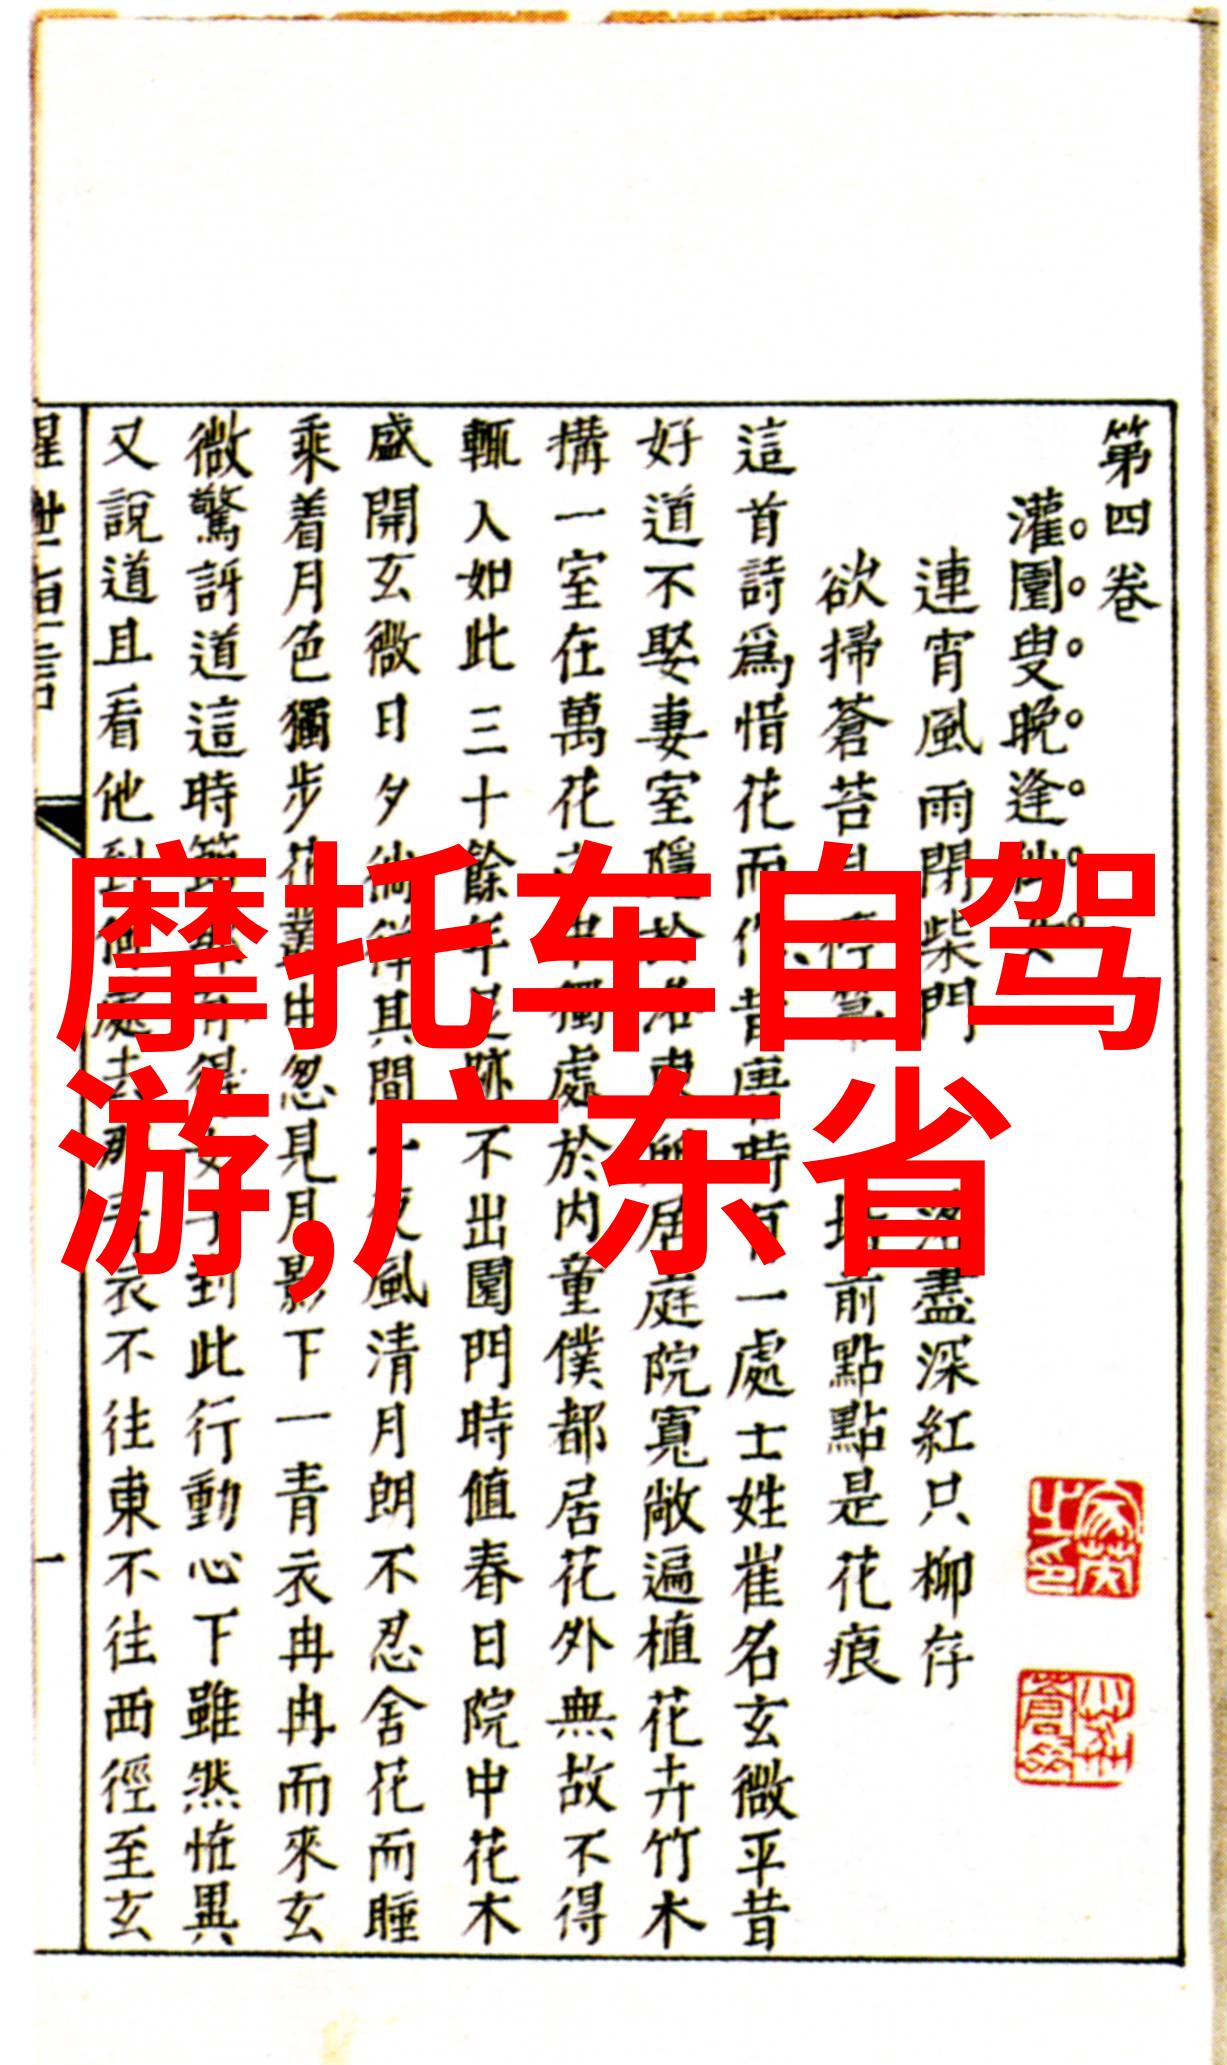 第四卷
灌園叟晚逢仙女
連宵風雨閉柴門 盡深紅只柳存
欲掃蒼苔且 前點點是花痕
這首詩爲惜花而作昔唐時有一處士姓崔名玄微平昔
好道不娶妻室隱於洛東所居庭院寬敞遍植花卉竹木
搆一室在萬花之中獨處於内童僕都居花外無故不得
輒入如此三十餘年足跡不出園門時值春日院中花木
盛開玄微日夕徜徉其間一夜風清月朗不忍舍花而睡
乘着月色獨步花叢中忽見月影下一青衣冉冉而來玄
微驚訝道這時節 得 女子到此行動心下雖然恠異
又說道且看他到何處去那青衣不往東不往西徑至玄
醒世恒言
一
摩托车自驾
游,广东省